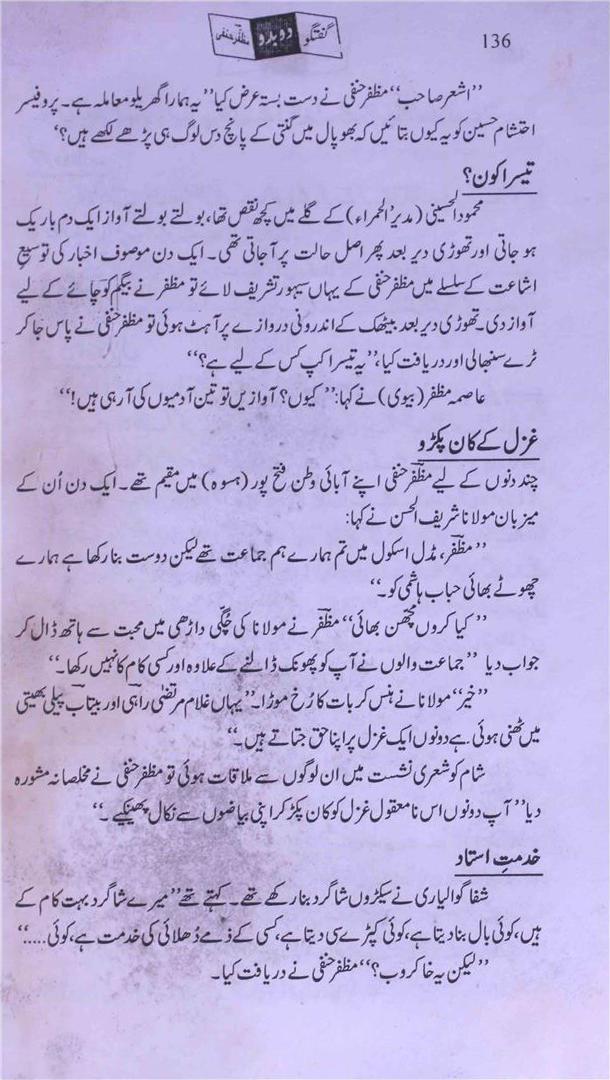 گفتگو دوبدو مظفر حنفی
136
”اشعر صاحب“ مظفر حنفی نے دست بستہ عرض کیا ”یہ ہمارا گھریلو معاملہ ہے۔ پروفیسر
احتشام حسین کو یہ کیوں بتائیں کہ بھوپال میں گنتی کے پانچ دس لوگ ہی پڑھے لکھے ہیں؟‘
تیسرا کون؟
محمود الحسینی (مدیرؔ الحمراء) کے گلے میں کچھ نقص تھا، بولتے بولتے آواز ایک دم باریک
ہو جاتی اور تھوڑی دیر بعد پھر اصل حالت پر آجاتی تھی۔ ایک دن موصوف اخبار کی توسیعِ
اشاعت کے سلسلے میں مظفر حنفی کے یہاں سیہور تشریف لائے تو مظفر نے بیگم کو چائے کے لیے
آواز دی۔ تھوڑی دیر بعد بیٹھک کے اندرونی دروازے پر آہٹ ہوئی تو مظفر حنفی نے پاس جا کر
ٹرے سنبھالی اور دریافت کیا، ”یہ تیسرا کپ کس کے لیے ہے؟“
عاصمہ مظفر (بیوی) نے کہا: ”کیوں؟ آوازیں تو تین آدمیوں کی آرہی ہیں!“
غزل کے کان پکڑو
چند دنوں کے لیے مظفرؔ حنفی اپنے آبائی وطن فتح پور (ہسوہ) میں مقیم تھے۔ ایک دن اُن کے
میزبان مولانا شریف الحسن نے کہا:
”مظفرؔ، مڈل اسکول میں تم ہمارے ہم جماعت تھے لیکن دوست بنا رکھا ہے ہمارے
چھوٹے بھائی حباب ہاشمی کو۔“
”کیا کروں مچھن بھائی“ مظفرؔ نے مولانا کی چگی داڑھی میں محبت سے ہاتھ ڈال کر
جواب دیا ”جماعت والوں نے آپ کو پھونک ڈالنے کے علاوہ اور کسی کام کا نہیں رکھا۔“
”خیر“ مولانا نے ہنس کر بات کا رُخ موڑا۔ ”یہاں غلام مرتضٰی راہیؔ اور بیتابؔ پیلی بھیتی
میں ٹھنی ہوئی ہے دونوں ایک غزل پر اپنا حق جتاتے ہیں۔“
شام کو شعری نشست میں ان لوگوں سے ملاقات ہوئی تو مظفر حنفی نے مخلصانہ مشورہ
دیا ”آپ دونوں اس نامعقول غزل کو کان پکڑ کر اپنی بیاضوں سے نکال پھینکیے۔“
خدمتِ استاد
شفا گوالیاری نے سیکڑوں شاگرد بنا رکھے تھے۔ کہتے تھے ”میرے شاگرد بہت کام کے
ہیں، کوئی بال بنا دیتا ہے، کوئی کپڑے سی دیتا ہے، کسی کے ذمے دُھلائی کی خدمت ہے، کوئی.....“
”لیکن یہ خاکروب؟“ مظفر حنفی نے دریافت کیا۔